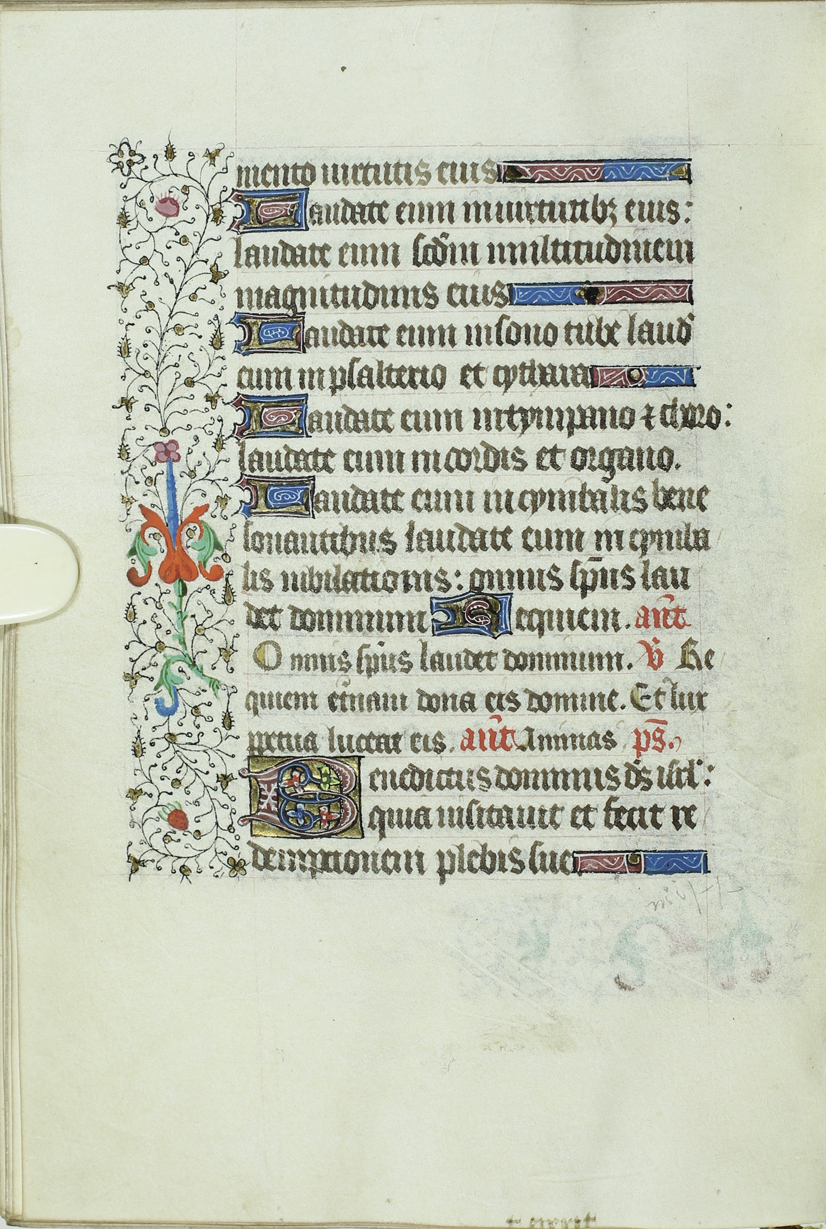 mento uirtutis eius
Laudate eum in uirtutibꝫ eius:
laudate eum scd̄m multitudinem
magnitudinis eius
Laudate eum in sono tube laud̄
eum in psalterio et cythara
Laudate eum in tympano ⁊ choro:
laudate eum in cordis et organo.
Laudate eum in cymbalis bene
sonantibus laudate eum in cymba
lis iubilationis: omnis sp̄us lau
det dominum Requiem. an̄t
Omnis sp̄us laudet dominum. V̄ Re
quiem et̄nam dona eis domine. Et lux
ꝑpetua luceat eis. an̄t Animas ps̄.
Benedictus dominus ds̄ isrl̄:
quia uisitauit et fecit re
demptionem plebis sue